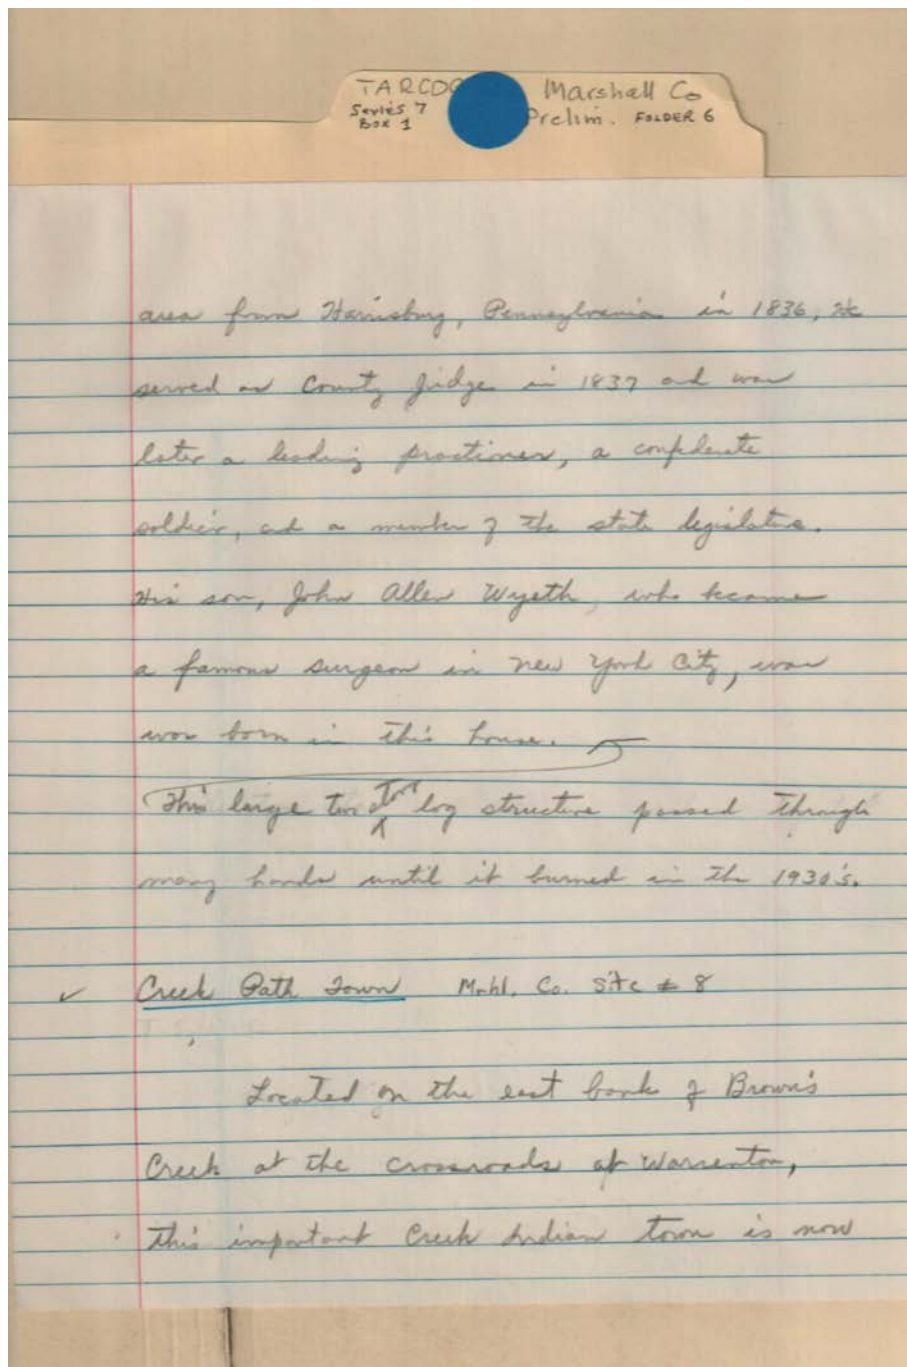 TARCOG Marshall Co
Series 7 Prelim. FOLDER 6
Box 1
area from Harrisburg, Pennsylvania in 1836, He
served as County Judge in 1837 and was
later a leading practiner, a confederate
soldier, and a member of the state legislature.
His son, John Allen Wyeth, who became
a famous surgeon in New York City, was
was born in this house.
This large two story log structure passed through
many hands until it burned in the 1930's.
✓ Creek Path Town Mrhl. Co. Site # 8
Located on the east bank of Brown's
Creek at the crossroads of Warrenton,
this important Creek Indian town is now